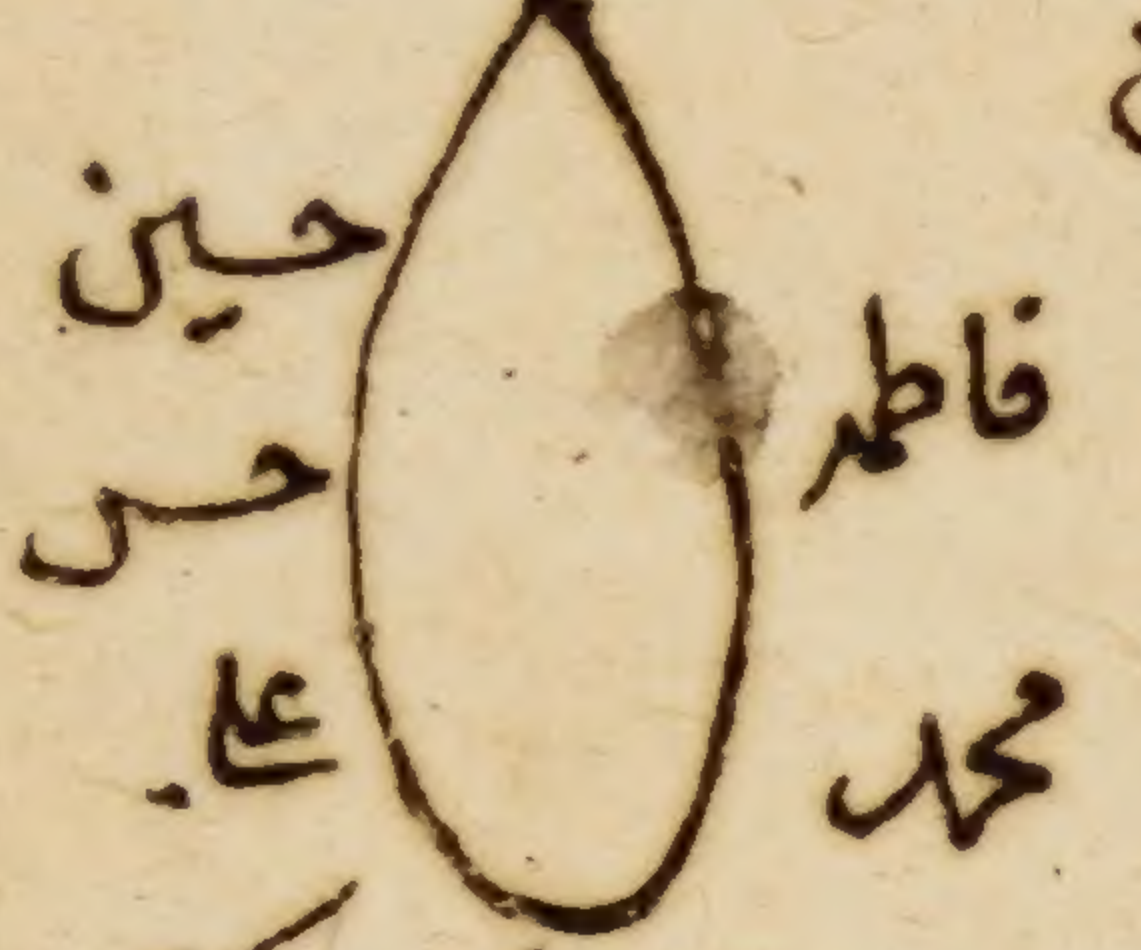 فاطمه
محمد
حسین
حسن
علی